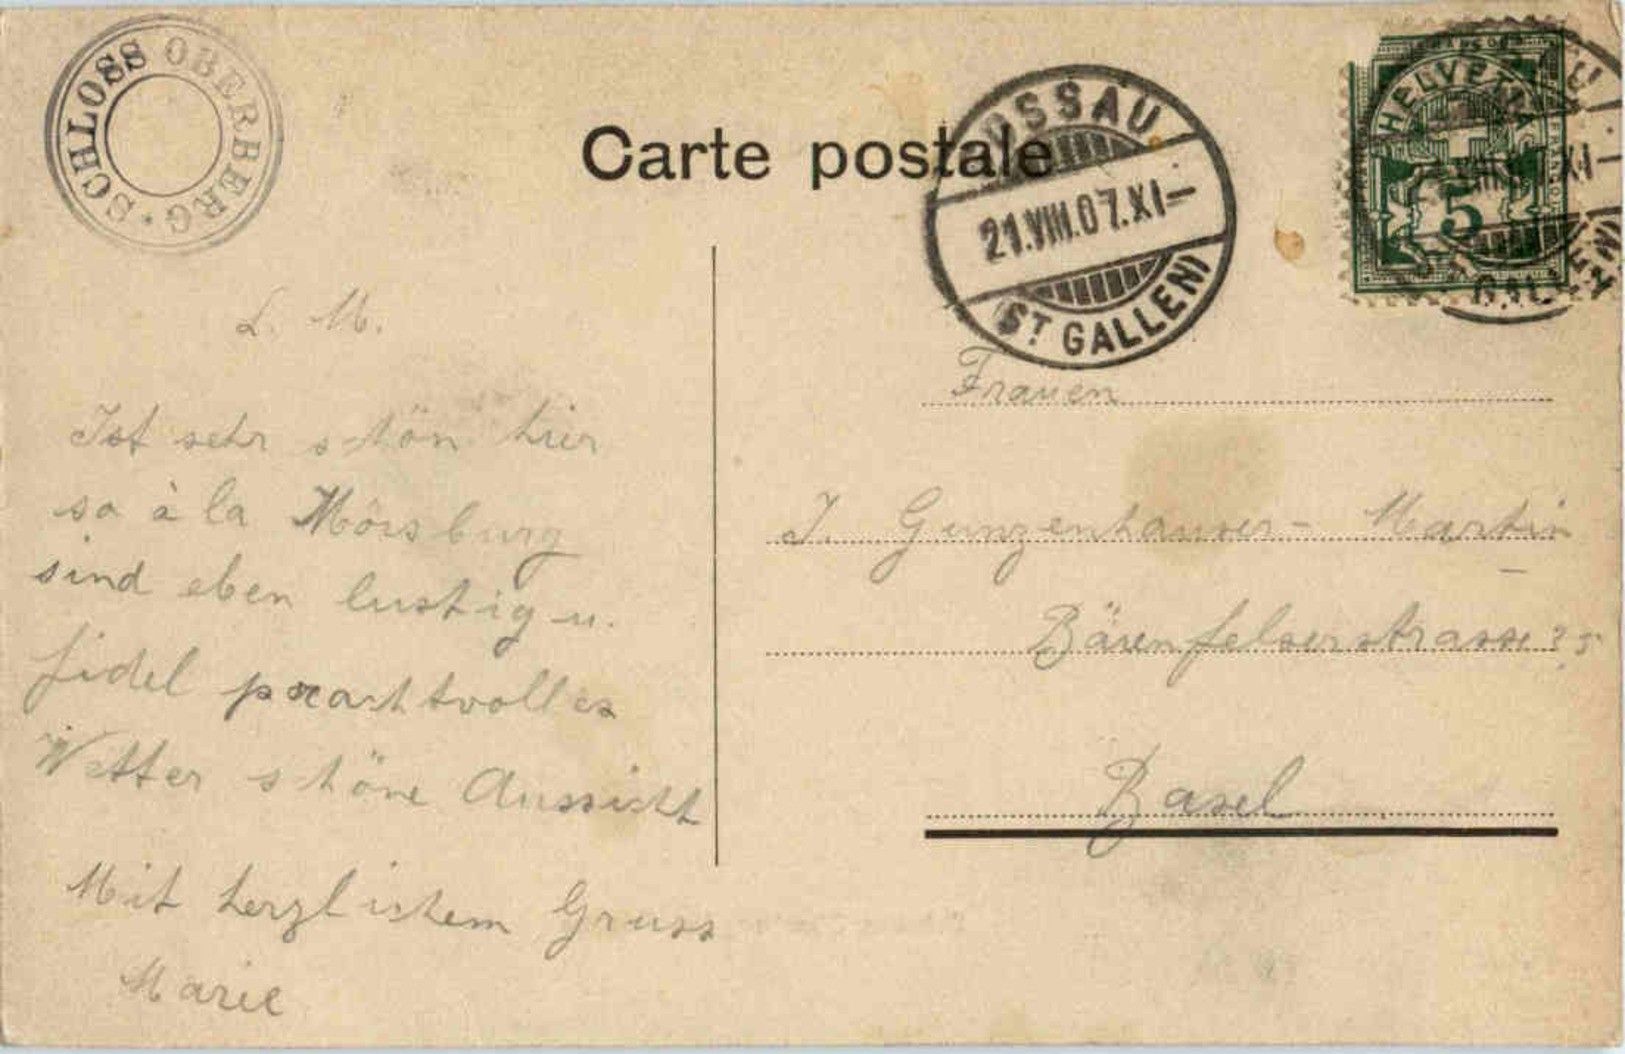 SCHLOSS OBERBERG
Carte postale
GOSSAU
21.VIII.07.XI—
(ST GALLEN)
HELVETIA
5
L. M.
Ist sehr schön hier
so à la Mörsburg
sind eben lustig u.
fidel prachtvolles
Wetter schöne Aussicht
Mit herzlichem Gruss
Marie
Frauen
J. Gunzenhauser-Martin
Bärenfelserstrasse
Basel